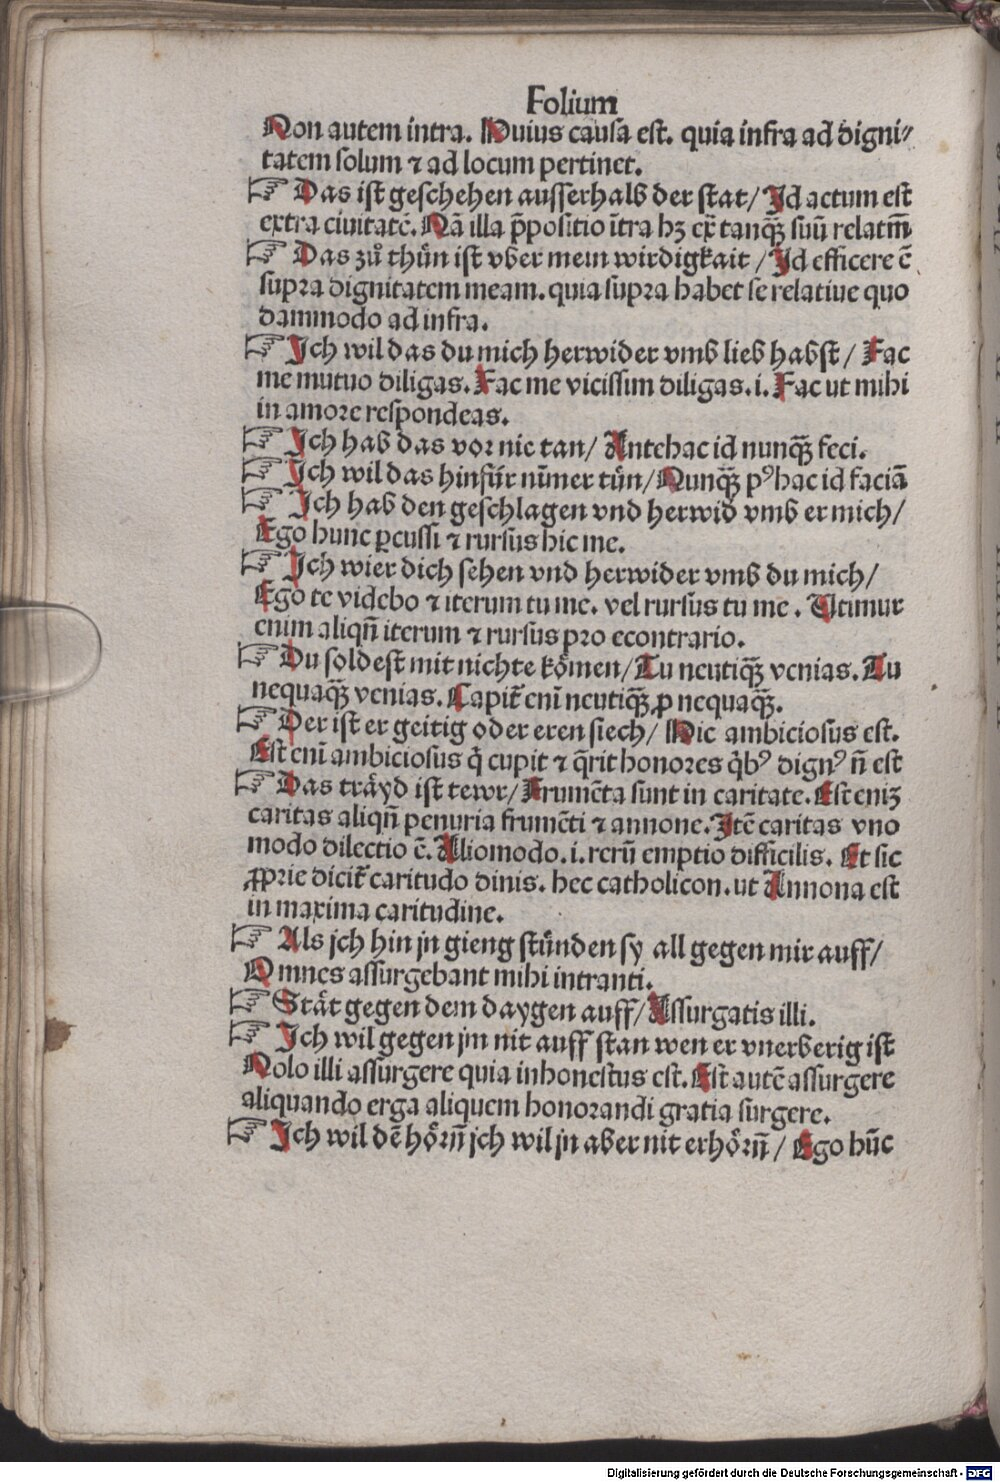 Folium
Non autem intra. Huius causa est. quia infra ad digni⸗
tatem solum ⁊ ad locum pertinet.
☞ Das ist geschehen ausserhalb der stat/ Id actum est
extra ciuitatē. Nā illa p̄positio ītra hꝫ ex̄ tanqꝫ̄ suū relatm̄
☞ Das zů thůn ist vber mein wirdigkait / Id efficere ē
supra dignitatem meam. quia supra habet se relatiue quo
dammodo ad infra.
☞ Ich wil das du mich herwider vmb lieb habst / Fac
me mutuo diligas. Fac me vicissim diligas. i. Fac ut mihi
in amore respondeas.
☞ Ich hab das vor nie tan/ Antehac id nunqꝫ̄ feci.
☞ Ich wil das hinfür nīmer tün/ Nunqꝫ̄ pꝰhac id faciā
☞ Ich hab den geschlagen vnd herwid vmb er mich/
Ego hunc ꝑcussi ⁊ rursus hic me.
☞ Ich wier dich sehen vnd herwider vmb du mich/
Ego te videbo ⁊ iterum tu me. vel rursus tu me . Utimur
enim aliqn̄ iterum ⁊ rursus pro econtrario.
☞ Du soldest mit nichte kömen/ Tu neutiqꝫ̄ venias. Tu
nequaqꝫ̄ venias. Capit̄ enī neutiqꝫ̄ ꝓ nequaqꝫ̄.
☞ Der ist er geitig oder eren siech/ Hic ambiciosus est.
Est enī ambiciosus q̇ cupit ⁊ q̄rit honores q̇bꝰ dignꝰ n̄ est
☞ Das träyd ist tewr/ Frumēta sunt in caritate. Est eniꝫ
caritas aliqn̄ penuria frumēti ⁊ annone. Itē caritas vno
modo dilectio ē. Aliomodo. i. rerū emptio difficilis. Et sic
ꝓprie dicit̄ caritudo dinis. hec catholicon. ut Annona est
in maxima caritudine.
☞ Als jch hin jn gieng stůnden sy all gegen mir auff/
Omnes assurgebant mihi intranti.
☞ Stät gegen dem daygen auff/ Assurgatis illi.
☞ Ich wil gegen jm nit auff stan wen er vnerberig ist
Nolo illi assurgere quia inhonestus est. Est autē assurgere
aliquando erga aliquem honorandi gratia surgere.
☞ Ich wil dē hörn̄ jch wil jn aber nit erhörn̄ / Ego hūc
Digitalisierung gefördert durch die Deutsche Forschungsgemeinschaft - DFG